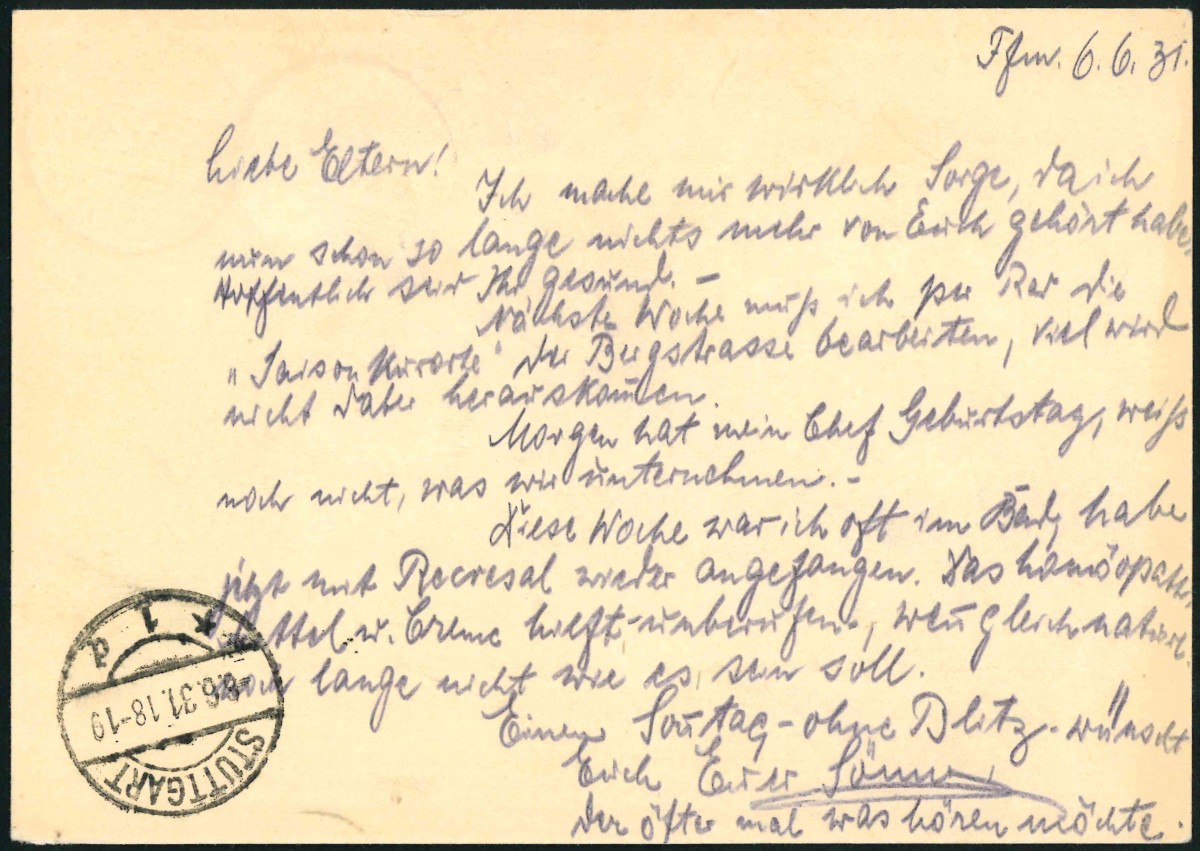 Ffm. 6.6.31.
Liebe Eltern!
Ich mache mir wirklich Sorge, da ich
nun schon so lange nichts mehr von Euch gehört habe,
Hoffentlich seid Ihr gesund. –
Nächste Woche muß ich per Rad die
"Saison Kurorte" der Bergstrasse bearbeiten, viel wird
nicht dabei herauskom̄en.
Morgen hat mein Chef Geburtstag, weiß
noch nicht, was wir unternehmen. –
Diese Woche war ich oft im Bad, habe
jetzt mit Recresal wieder angefangen. Das homöopath.
Mittel u. Creme hilft unberufen, wen̄gleich natürl.
noch lange nicht wie es sein soll.
Einen Son̄tag – ohne Blitz – wünscht
Euch Euer
der öfter mal was hören möchte.
STUTTGART
1
-8.6.31.18-19